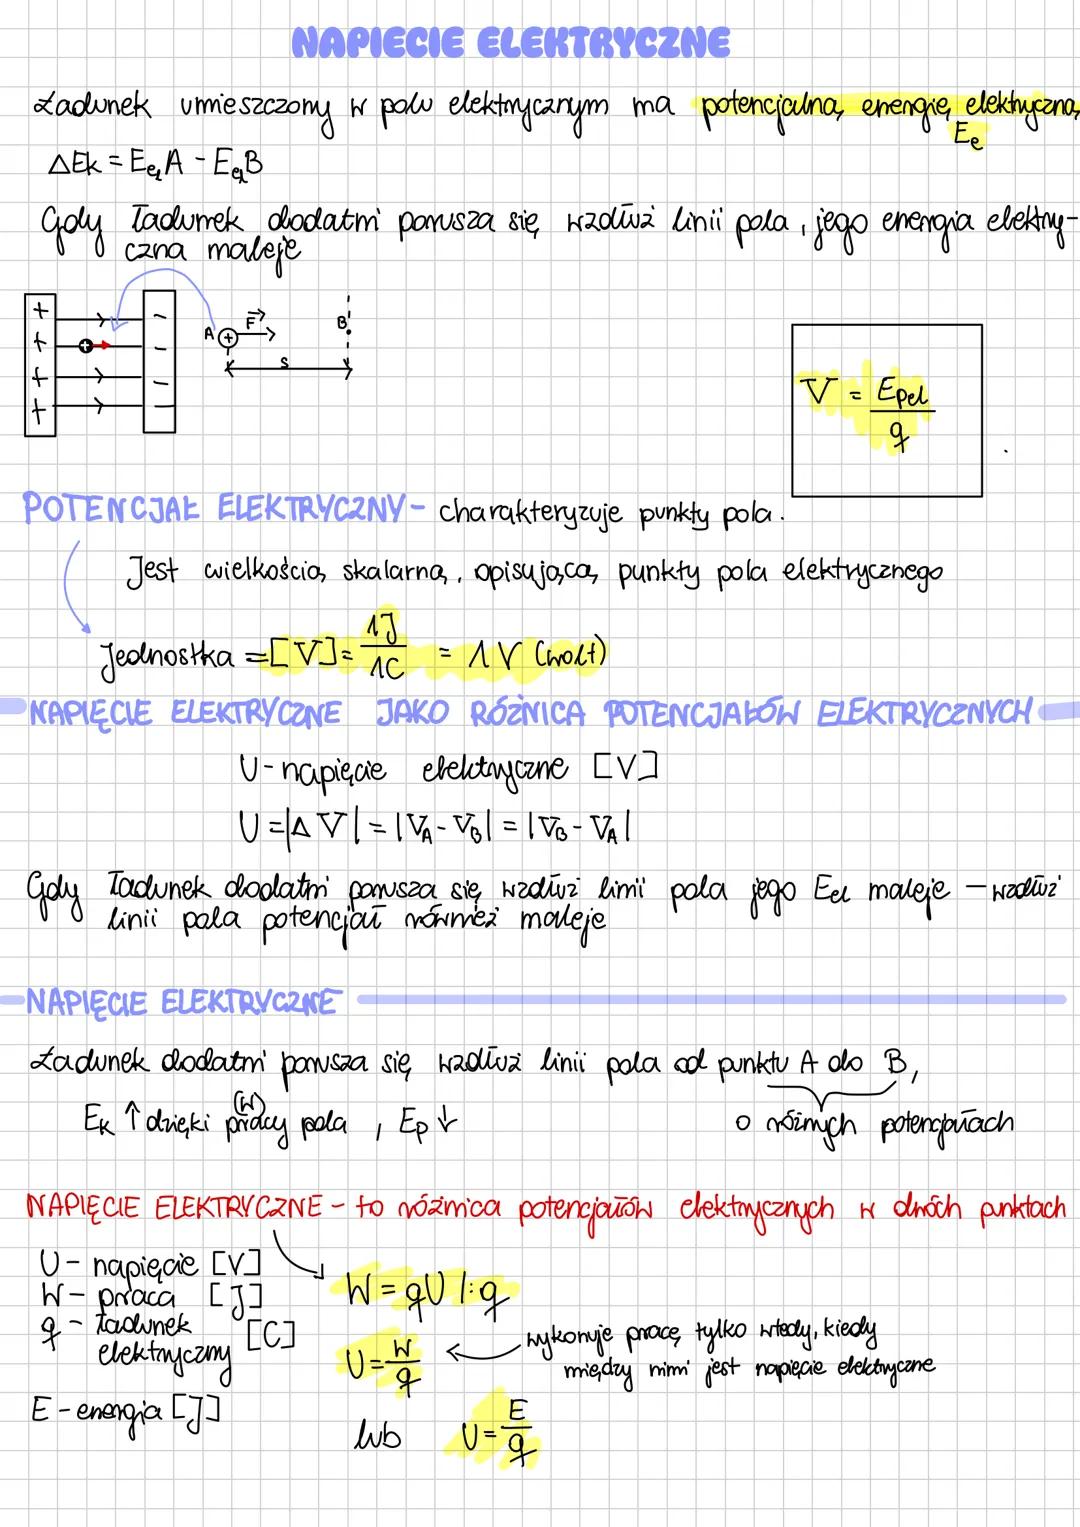 NAPIECIE ELEKTRYCZNE
Ładunek umieszczony w polu elektrycznym ma potencjalną energię elektryczną
Ee
ΔEk = Eel A - Eel B
Gdy ładunek dodatni porusza się wzdłuż linii pola, jego energia elektry-
czna maleje
+ + + +
- - - -
+
A + F B
s
V = Epel / q
POTENCJAŁ ELEKTRYCZNY - charakteryzuje punkty pola.
Jest wielkością skalarną, opisującą punkty pola elektrycznego
Jednostka = [V] = 1J / 1C = 1V (wolt)
NAPIĘCIE ELEKTRYCZNE JAKO RÓŻNICA POTENCJAŁÓW ELEKTRYCZNYCH
U - napięcie elektryczne [V]
U = |ΔV| = |VA - VB| = |VB - VA|
Gdy ładunek dodatni porusza się wzdłuż linii pola jego Eel maleje - wzdłuż
linii pola potencjał również maleje
NAPIĘCIE ELEKTRYCZNE
Ładunek dodatni porusza się wzdłuż linii pola od punktu A do B,
Ek ↑ dzięki pracy (W) pola, Ep ↓
o różnych potencjałach
NAPIĘCIE ELEKTRYCZNE - to różnica potencjałów elektrycznych w dwóch punktach
U - napięcie [V]
W - praca [J]
q - ładunek
elektryczny [C]
E - energia [J]
W = qU |:q
U = W / q
wykonuje pracę tylko wtedy, kiedy
między nimi jest napięcie elektryczne
lub U = E / q